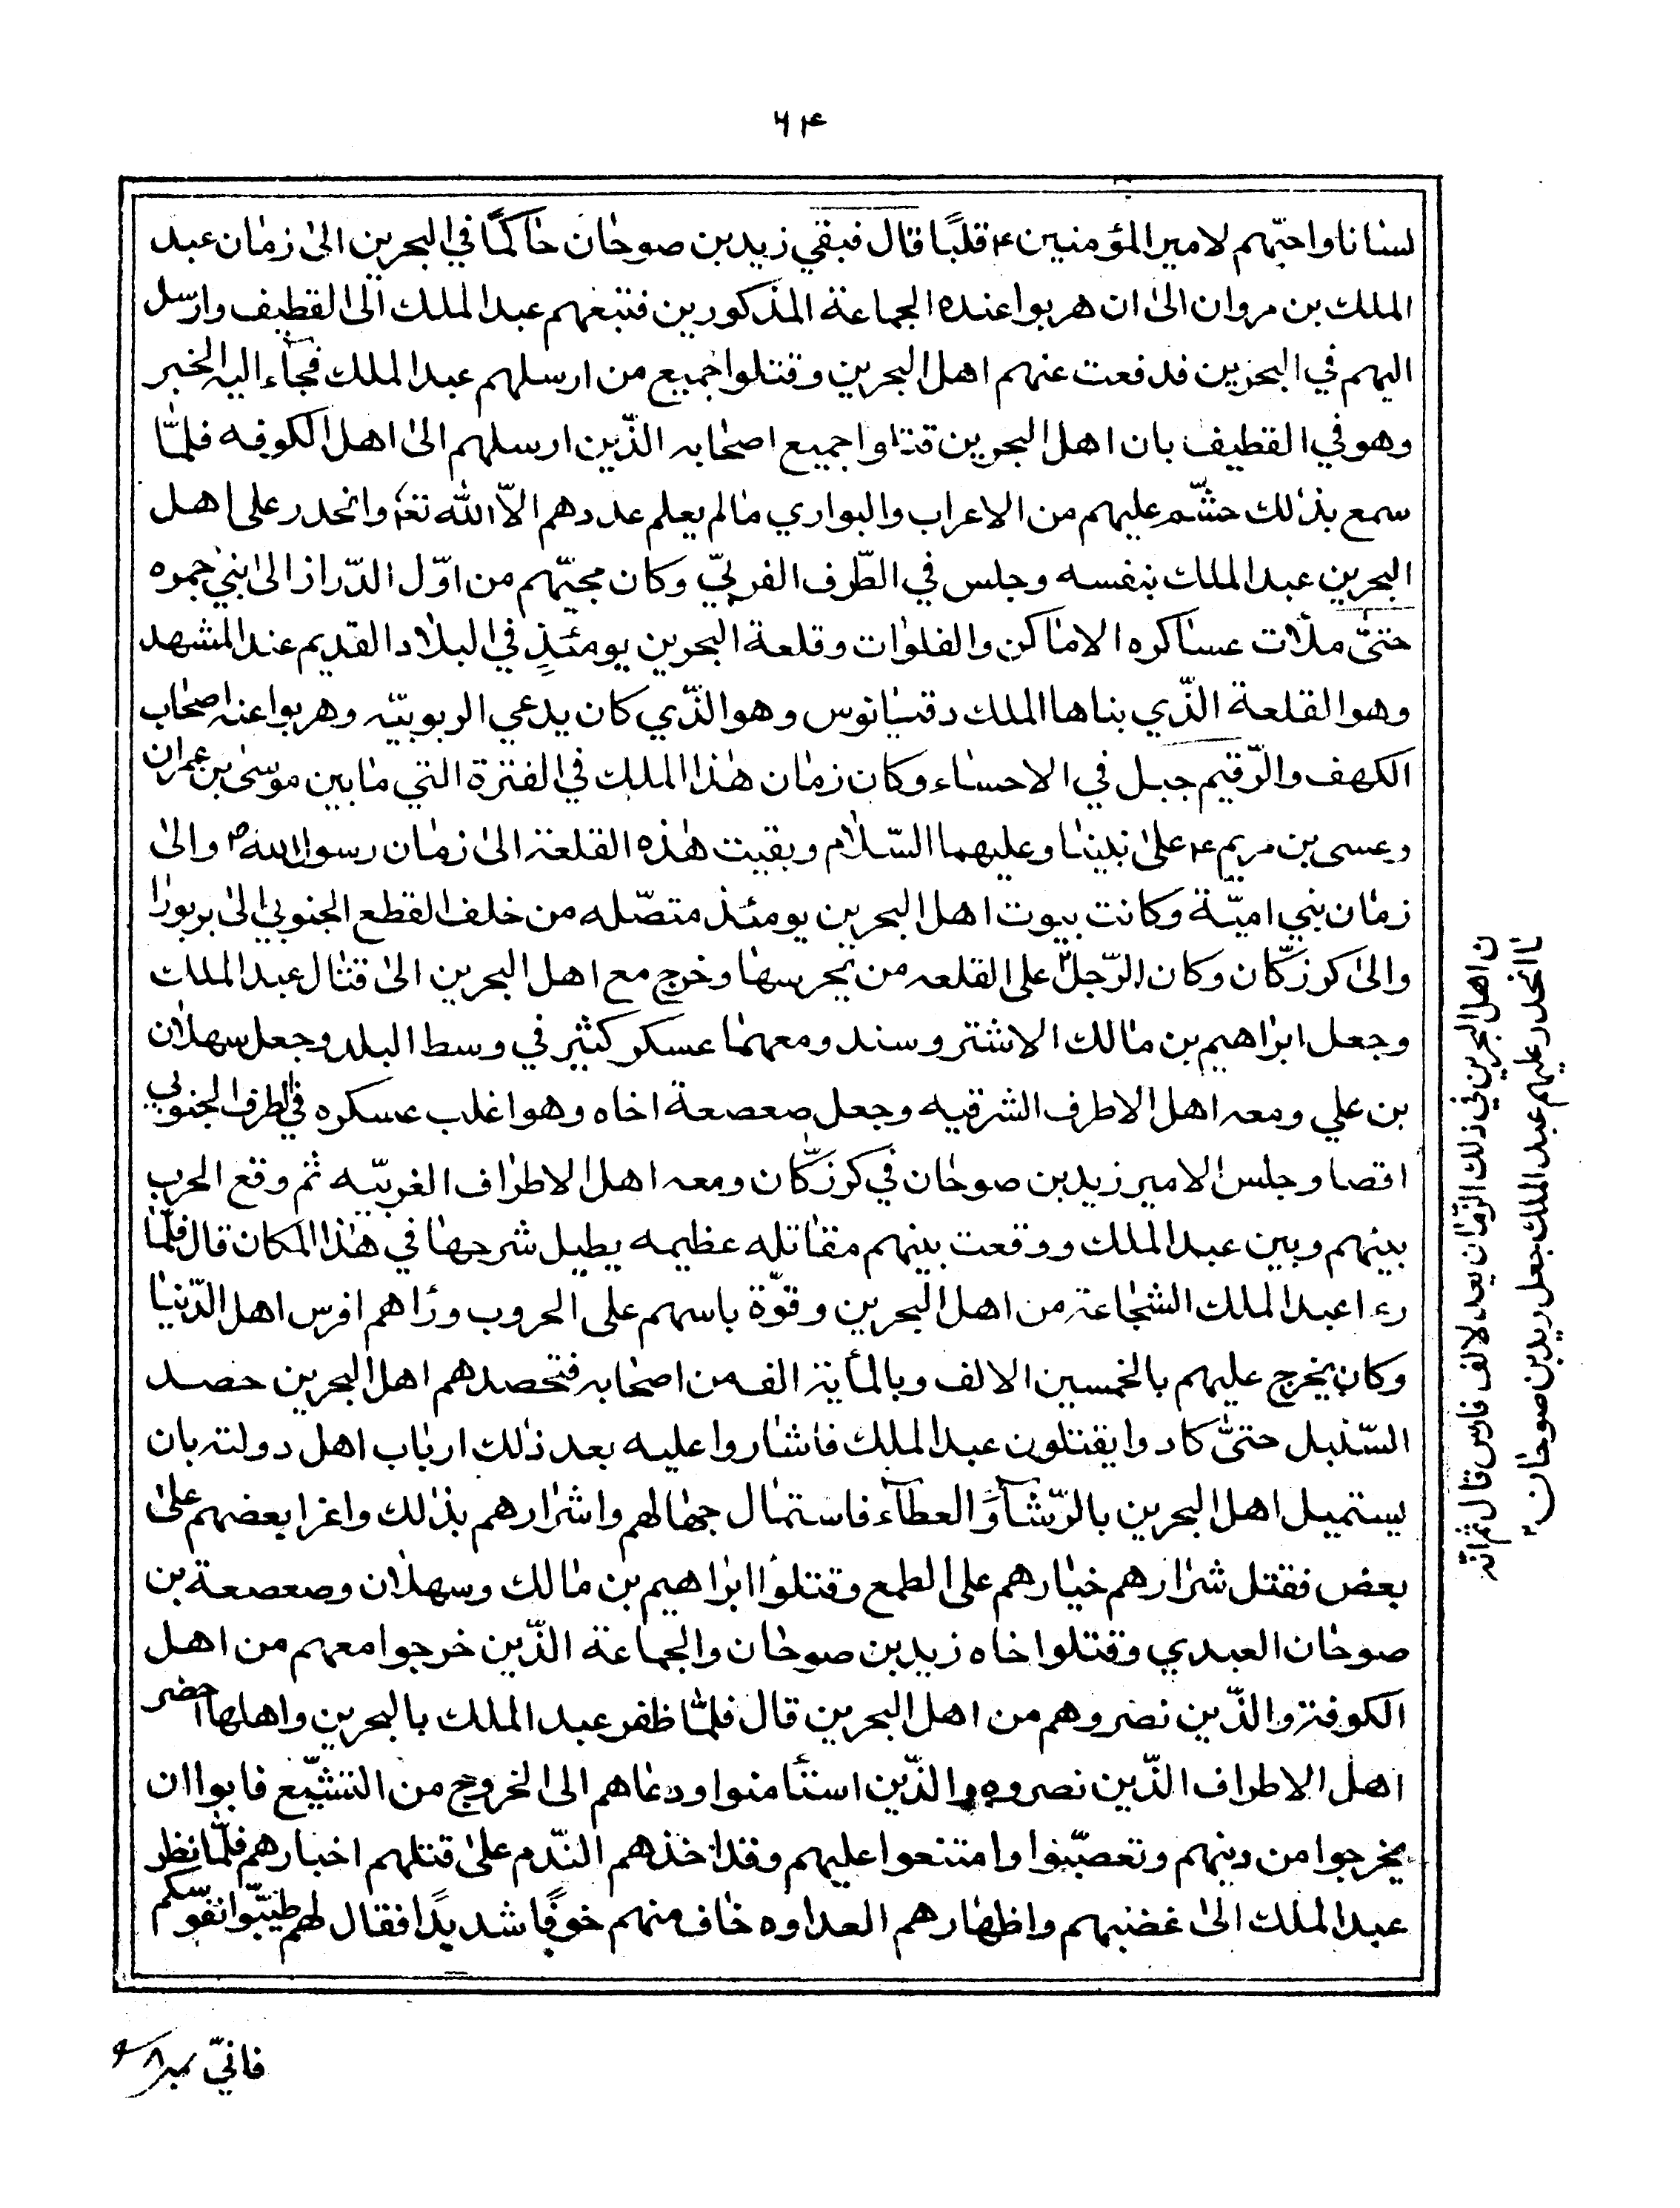 ٦۴
لسانا واحبّهم لامير المؤمنين ع قلبًا قال فبقي زيد بن صوحان حاكمًا في البحرين الىٰ زمان عبد
الملك بن مروان الىٰ ان هربوا عنده الجماعة المذكورين فتبعهم عبد الملك الى القطيف وارسل
اليهم في البحرين فدفعت عنهم اهل البحرين وقتلوا جميع من ارسلهم عبد الملك فجآء اليه الخبر
وهو في القطيف بان اهل البحرين قتلوا جميع اصحابه الذّين ارسلهم الىٰ اهل الكوفه فلمّا
سمع بذلك حشّم عليهم من الاعراب والبواري ما لم يعلم عددهم الّا الله تعٰ وانحدر على اهل
البحرين عبد الملك بنفسه وجلس في الطّرف الغربيّ وكان مجيّهم من اوّل الدّراز الىٰ بني جمره
حتىّ ملأت عساكره الاماكن والفلوات وقلعة البحرين يومئذٍ في البلاد القديم عند المشهد
وهو القلعة الذّي بناها الملك دقيانوس وهو الذّي كان يدعي الربوبيّه وهربوا عنه اصحاب
الكهف والرّقيم جبل في الاحساء وكان زمان هٰذا الملك في الفترة التي ما بين موسىٰ بن عمران
وعسى بن مريم ع علىٰ نبينا وعليهما السّلام وبقيت هٰذه القلعة الىٰ زمان رسول الله ص والىٰ
زمان بني اميّة وكانت بيوت اهل البحرين يومئذ متصّله من خلف القطع الجنوبي الىٰ بربورا
والىٰ كرزكّان وكان الرّجل على القلعه من يحرسها وخرج مع اهل البحرين الىٰ قتال عبد الملك
وجعل ابراهيم بن مالك الاشتر وسند ومعهما عسكر كثير في وسط البلد وجعل سهلان
بن علي ومعه اهل الاطرف الشرقيه وجعل صعصعة اخاه وهو اغلب عسكره في الطرف الجنوبي
اقصا وجلس الامير زيد بن صوحان في كرزكّان ومعه اهل الاطراف الغربيّه ثم وقع الحرب
بينهم وبين عبد الملك ووقعت بينهم مقاتله عظيمه يطيل شرحها في هٰذا المكان قال فلمّا
رءا عبد الملك الشجاعة من اهل البحرين وقوّة باسهم على الحروب ورٔاهم افرس اهل الدّنيا
وكان يخرج عليهم بالخمسين الالف وبالمأية الف من اصحابه فتحصدهم اهل البحرين حصد
السّنبل حتىّ كادوا يقتلون عبد الملك فاشاروا عليه بعد ذلك ارباب اهل دولته بان
يستميل اهل البحرين بالرّشآ والعطآء فاستمال جهالهم واشرارهم بذلك واغرا بعضهم علىٰ
بعض فقتل شرارهم خيارهم على الطمع وقتلوا ابراهيم بن مالك وسهلان وصعصعة بن
صوحان العبدي وقتلوا اخاه زيد بن صوحان والجماعة الذّين خرجوا معهم من اهل
الكوفة والذّين نصروهم من اهل البحرين قال فلمّا ظفر عبد الملك بالبحرين واهلها احضر
اهل الاطراف الذّين نصروه والذّين استأمنوا ودعاهم الى الخروج من التشيّع فابوا ان
يخرجوا من دينهم وتعصّبوا وامتنعوا عليهم وقد اخذهم النّدم علىٰ قتلهم اخيارهم فلمّا نظر
عبد الملك الىٰ غضبهم واظهارهم العداوه خاف منهم خوفًا شديدًا فقال لهم طيّبوا نفوسكم
فانيّ
ن اهل البحرين في ذلك الزمان يعد لالف فارس قال ثم انّه
نا انحدر عليهم عبد الملك جعل زيد بن صوحان